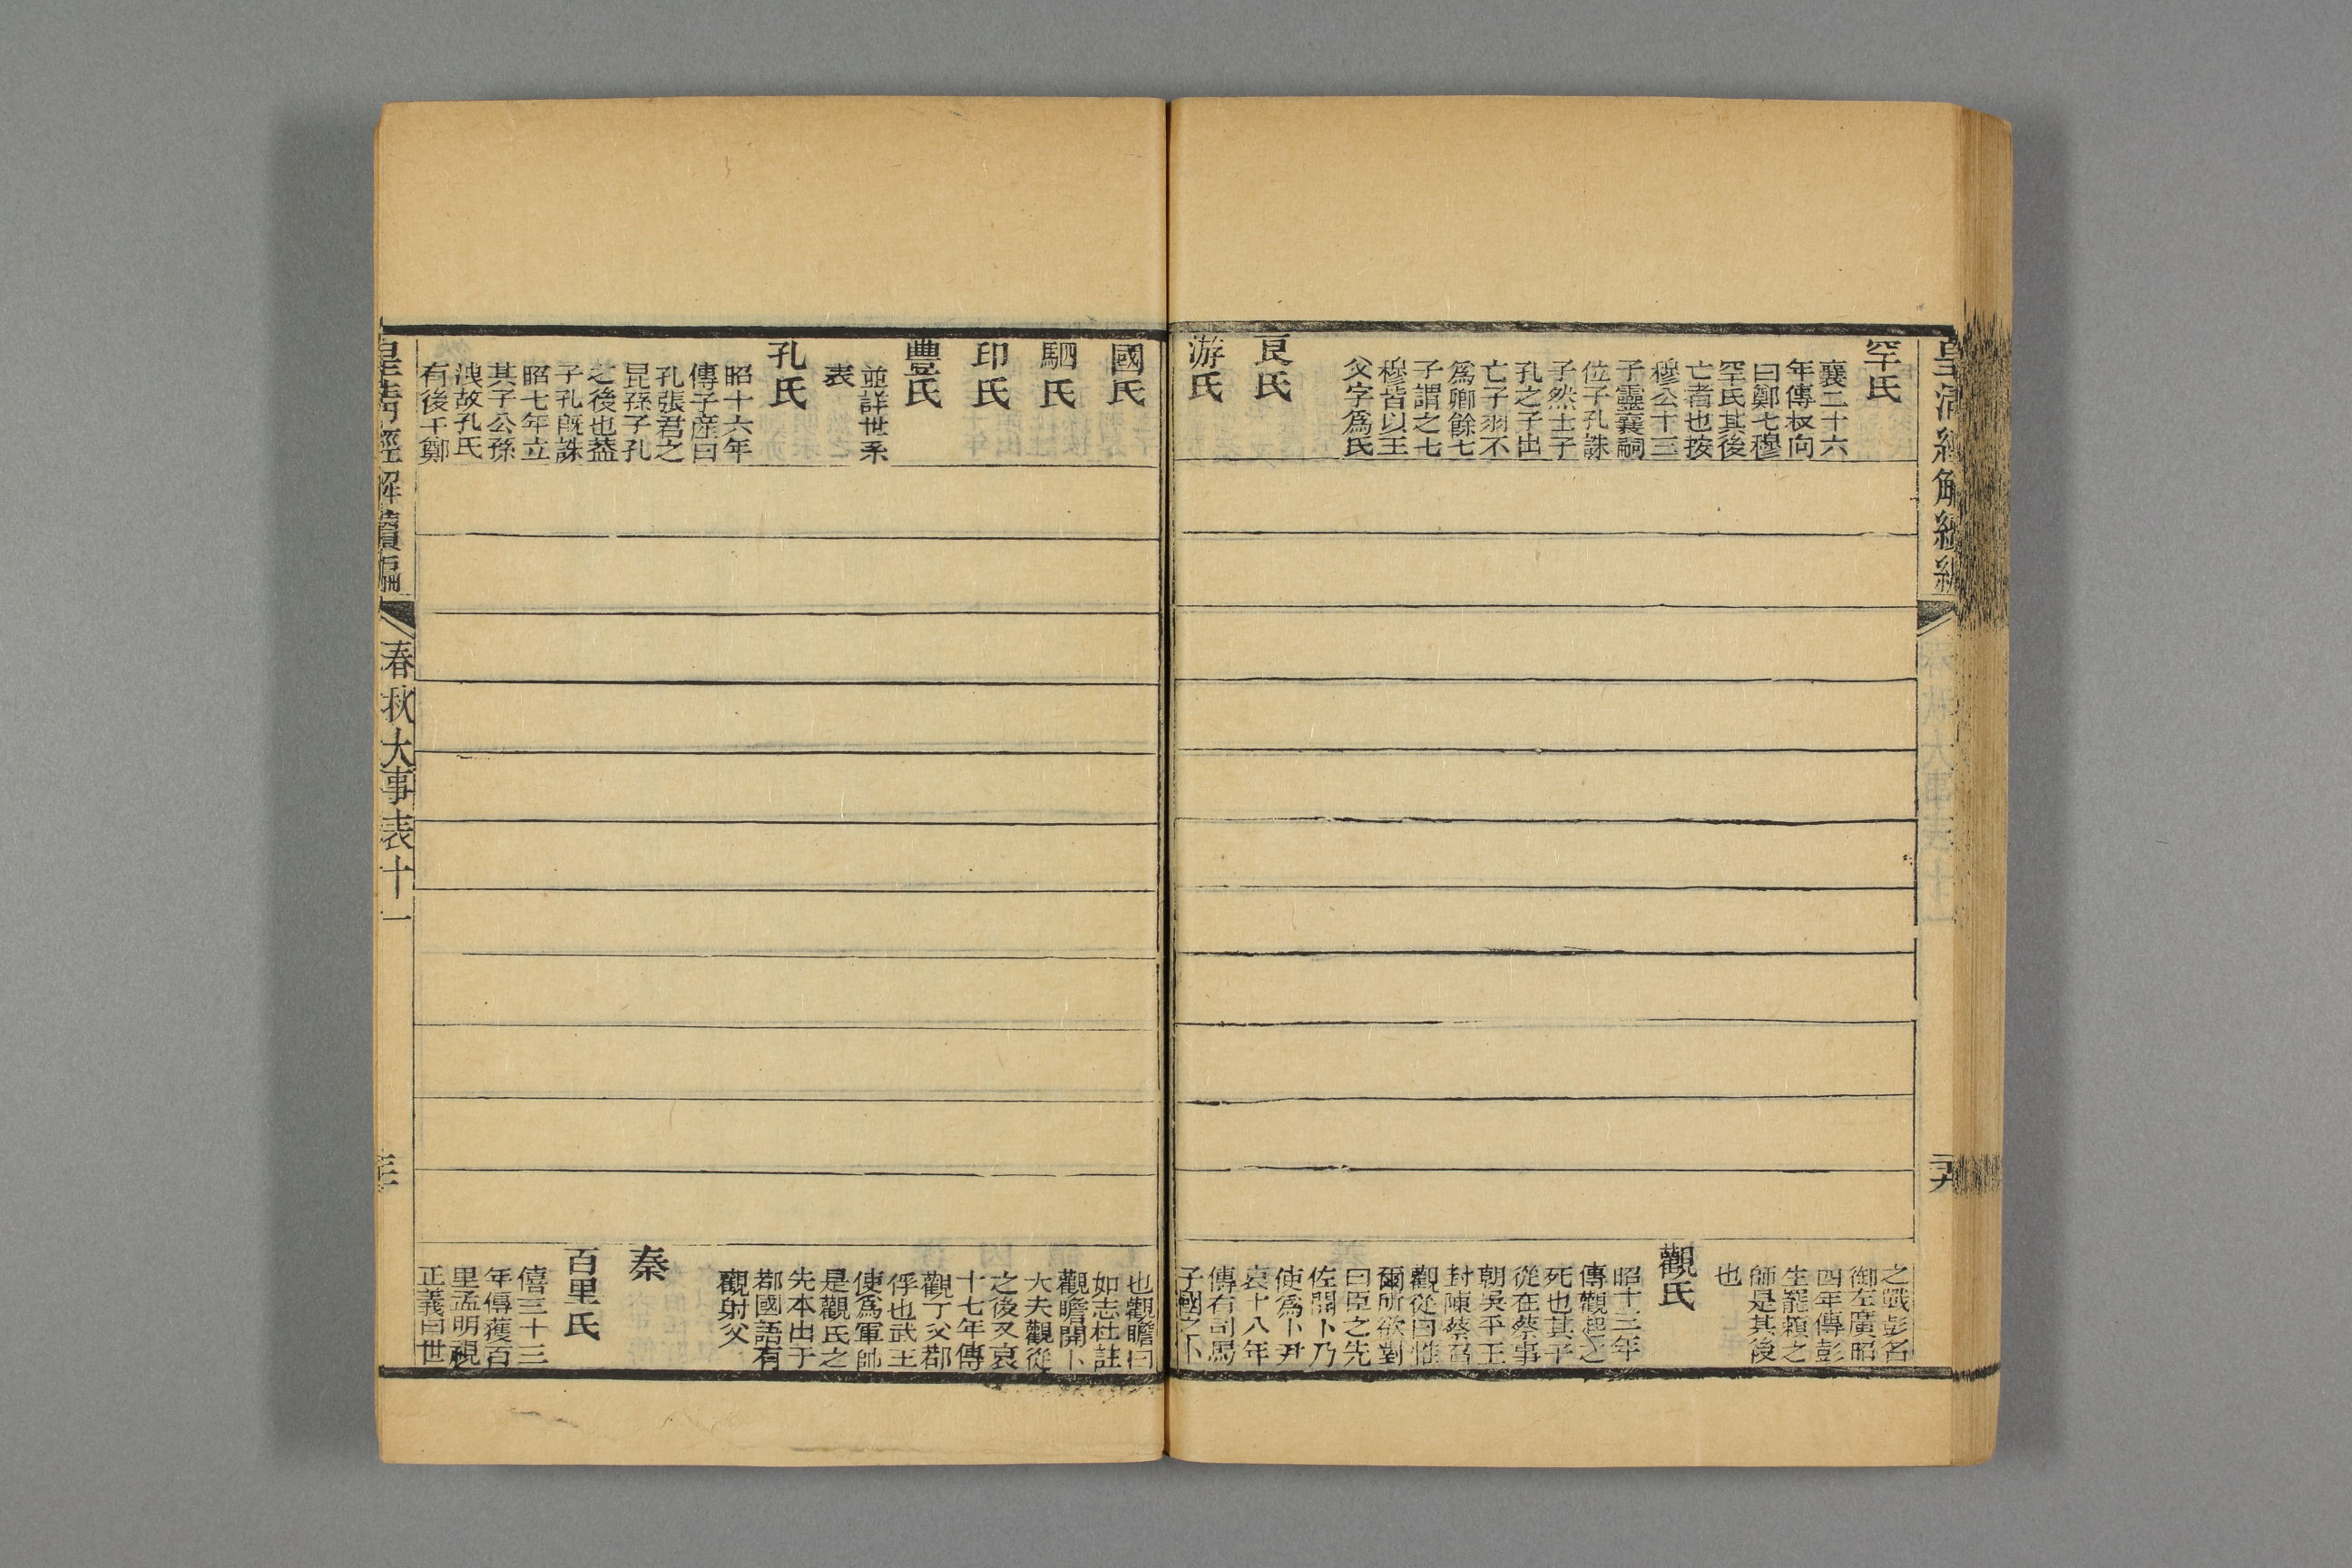 皇清經解續編
罕氏
襄二十六
年傳叔向
曰鄭七穆
罕氏其後
亡者也按
穆公十三
子靈襄嗣
位子孔誅
子然士子
孔之子出
亡子羽不
爲卿餘七
子謂之七
穆皆以王
父字爲氏
良氏
游氏
之戰彭名
御左廣昭
四年傳彭
生罷賴之
師是其後
也
觀氏
昭十三年
傳觀起之
死也其子
從在蔡事
朝吳平王
封陳蔡召
觀從曰惟
爾所欲對
曰臣之先
佐開卜乃
使爲卜尹
哀十八年
傳右司馬
子國之卜
國氏
駟氏
印氏
豐氏
並詳世系
表
孔氏
昭十六年
傳子產曰
孔張君之
昆孫子孔
之後也葢
子孔旣誅
昭七年立
其子公孫
洩故孔氏
有後于鄭
也觀瞻曰
如志杜註
觀瞻開卜
大夫觀從
之後又哀
十七年傳
觀丁父鄀
俘也武王
使爲軍帥
是觀氏之
先本出于
鄀國語有
觀射父
秦
百里氏
僖三十三
年傳獲百
里孟明視
正義曰世
皇清經解續編
春秋大事表十一